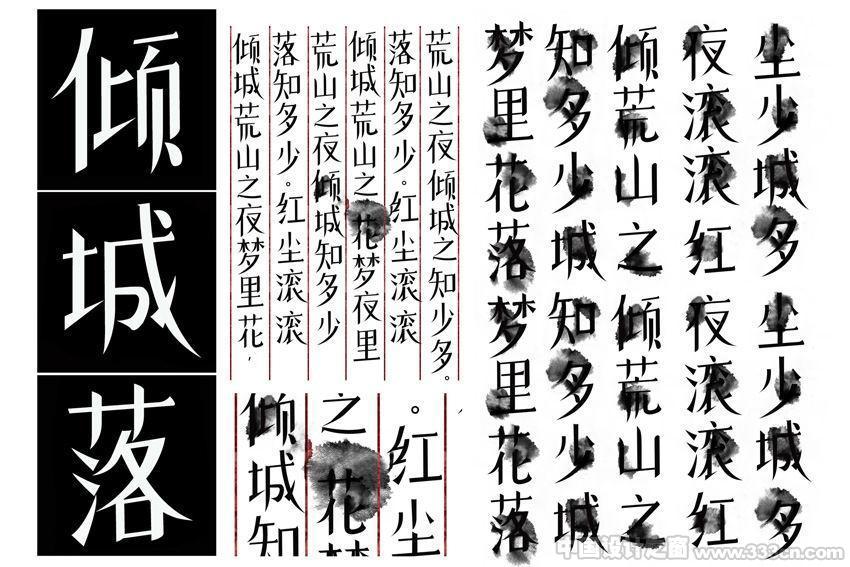 倾
城
落
倾城荒山之夜梦里花，
落知多少。红尘滚滚
荒山之夜倾城知多少
倾城荒山之花梦夜里
落知多少。红尘滚滚
荒山之夜倾城之知少多。
倾城知
之花梦
。红尘
梦里花落梦里花落
知多少城知多少城
倾荒山之倾荒山之
夜滚滚红夜滚滚红
尘少城多尘少城多
中国设计之窗 www.333cn.com